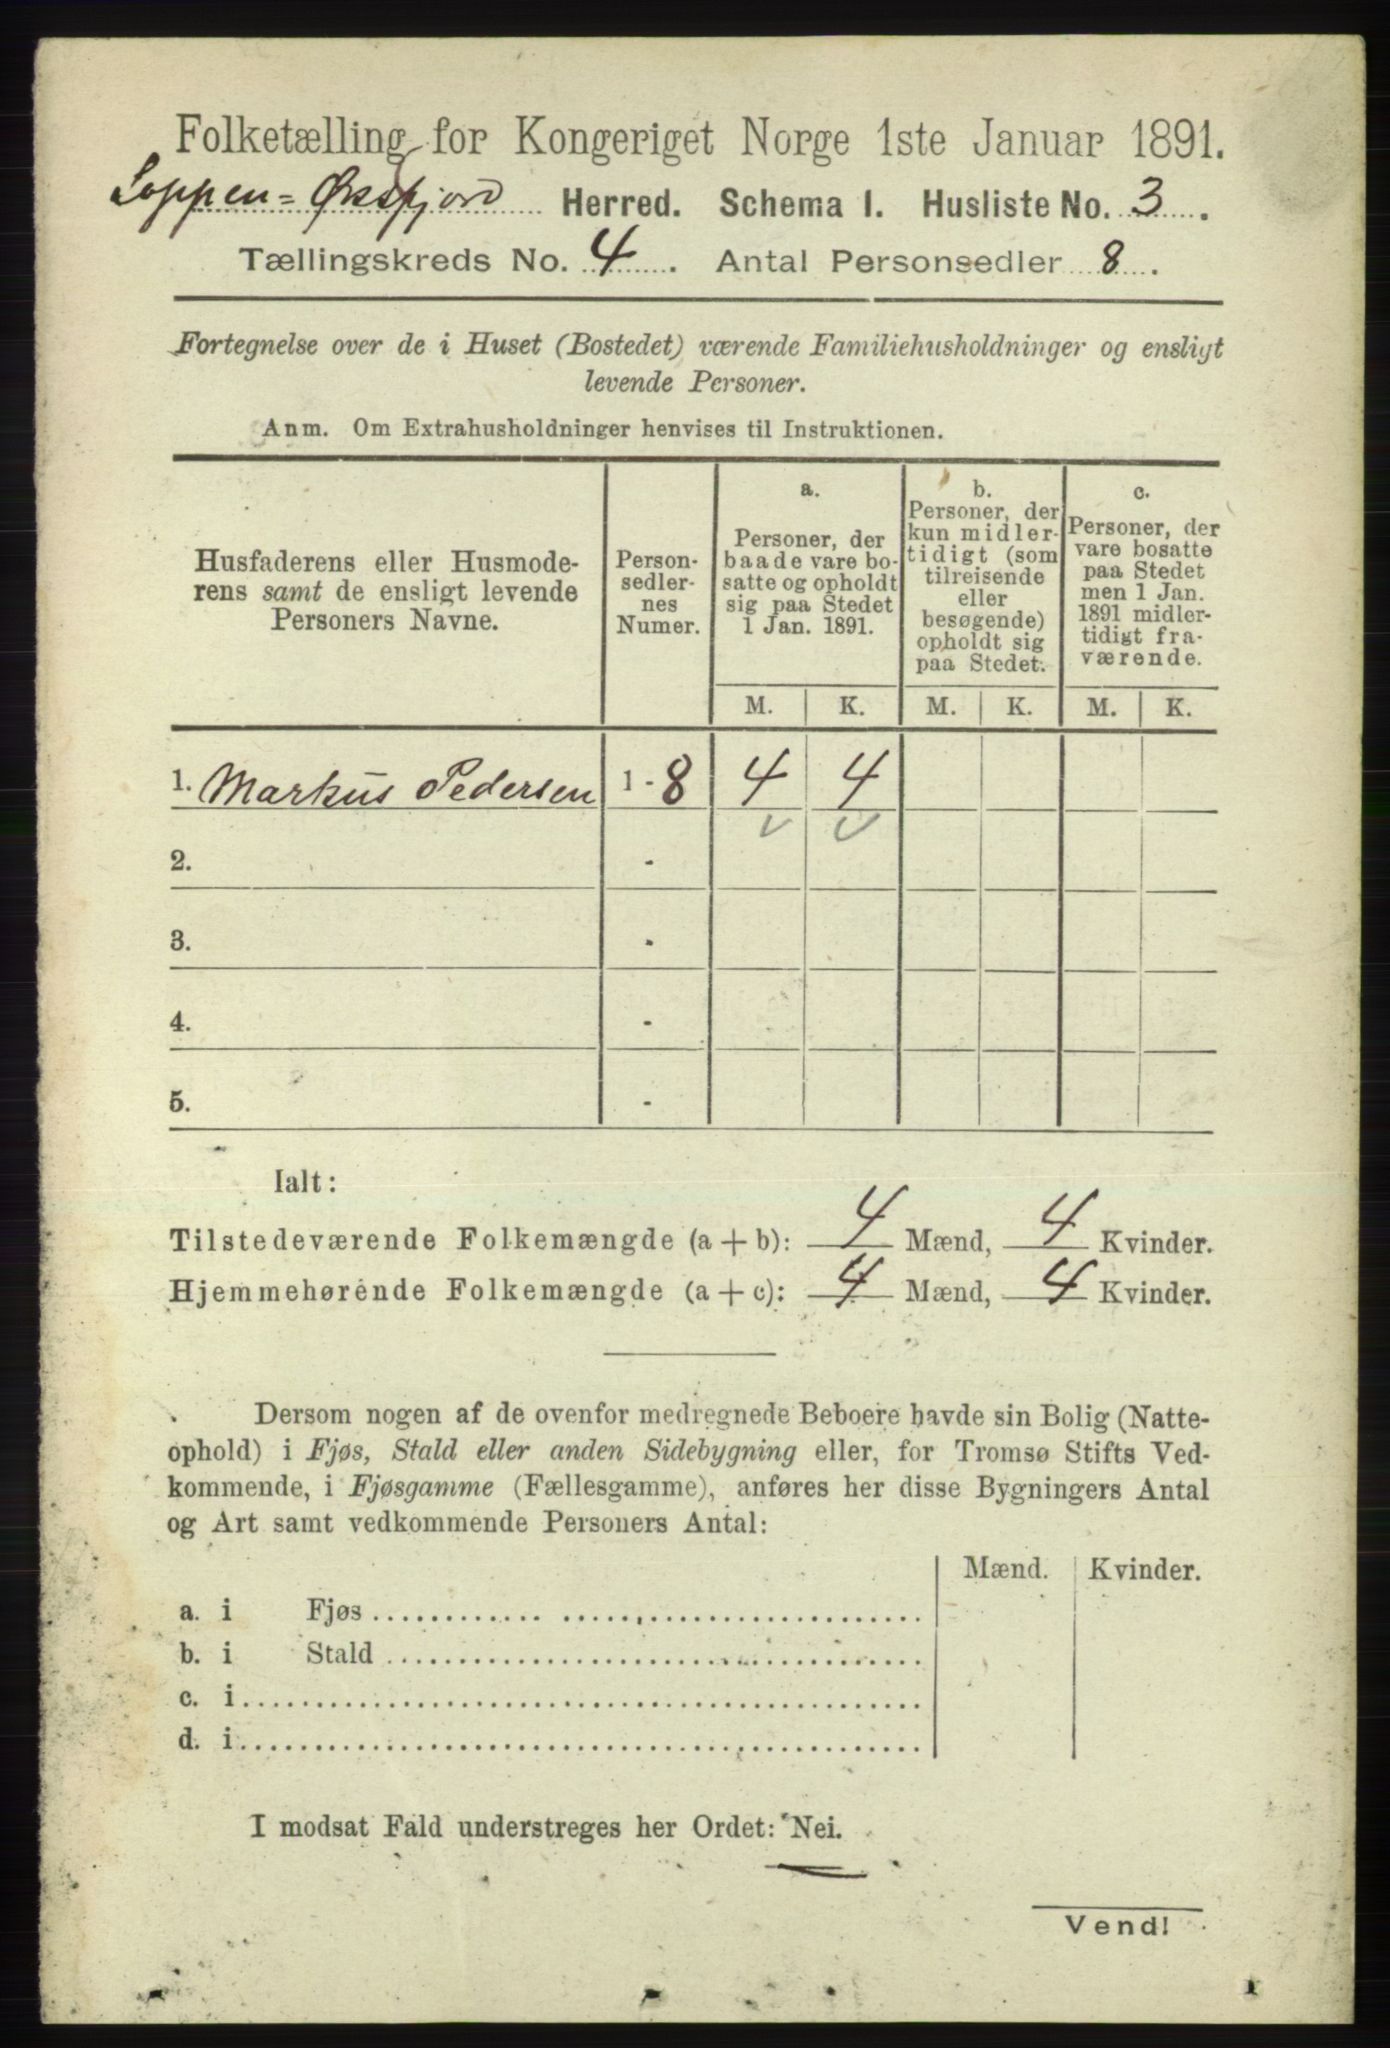 Folketælling for Kongeriget Norge 1ste Januar 1891.
Loppen = Øksfjord Herred. Schema I. Husliste No. 3.
Tællingskreds No. 4. Antal Personsedler 8.
Fortegnelse over de i Huset (Bostedet) værende Familiehusholdninger og ensligt
levende Personer.
Anm. Om Extrahusholdninger henvises til Instruktionen.
Husfaderens eller Husmode-
rens samt de ensligt levende
Personers Navne.
Person-
sedler-
nes
Numer.
a.
Personer, der
baade vare bo-
satte og opholdt
sig paa Stedet
1 Jan. 1891.
b.
Personer, der
kun midler-
tidigt (som
tilreisende
eller
besøgende)
opholdt sig
paa Stedet.
c.
Personer, der
vare bosatte
paa Stedet
men 1 Jan.
1891 midler-
tidigt fra-
værende.
M. K. M. K. M. K.
1. Markus Pedersen 1 - 8 4 4
2. -
3. -
4. -
5. -
Ialt:
Tilstedeværende Folkemængde (a + b): 4 Mænd, 4 Kvinder.
Hjemmehørende Folkemængde (a + c): 4 Mænd, 4 Kvinder.
Dersom nogen af de ovenfor medregnede Beboere havde sin Bolig (Natte-
ophold) i Fjøs, Stald eller anden Sidebygning eller, for Tromsø Stifts Ved-
kommende, i Fjøsgamme (Fællesgamme), anføres her disse Bygningers Antal
og Art samt vedkommende Personers Antal:
Mænd. Kvinder.
a. i Fjøs
b. i Stald
c. i
d. i
I modsat Fald understreges her Ordet: Nei.
Vend!